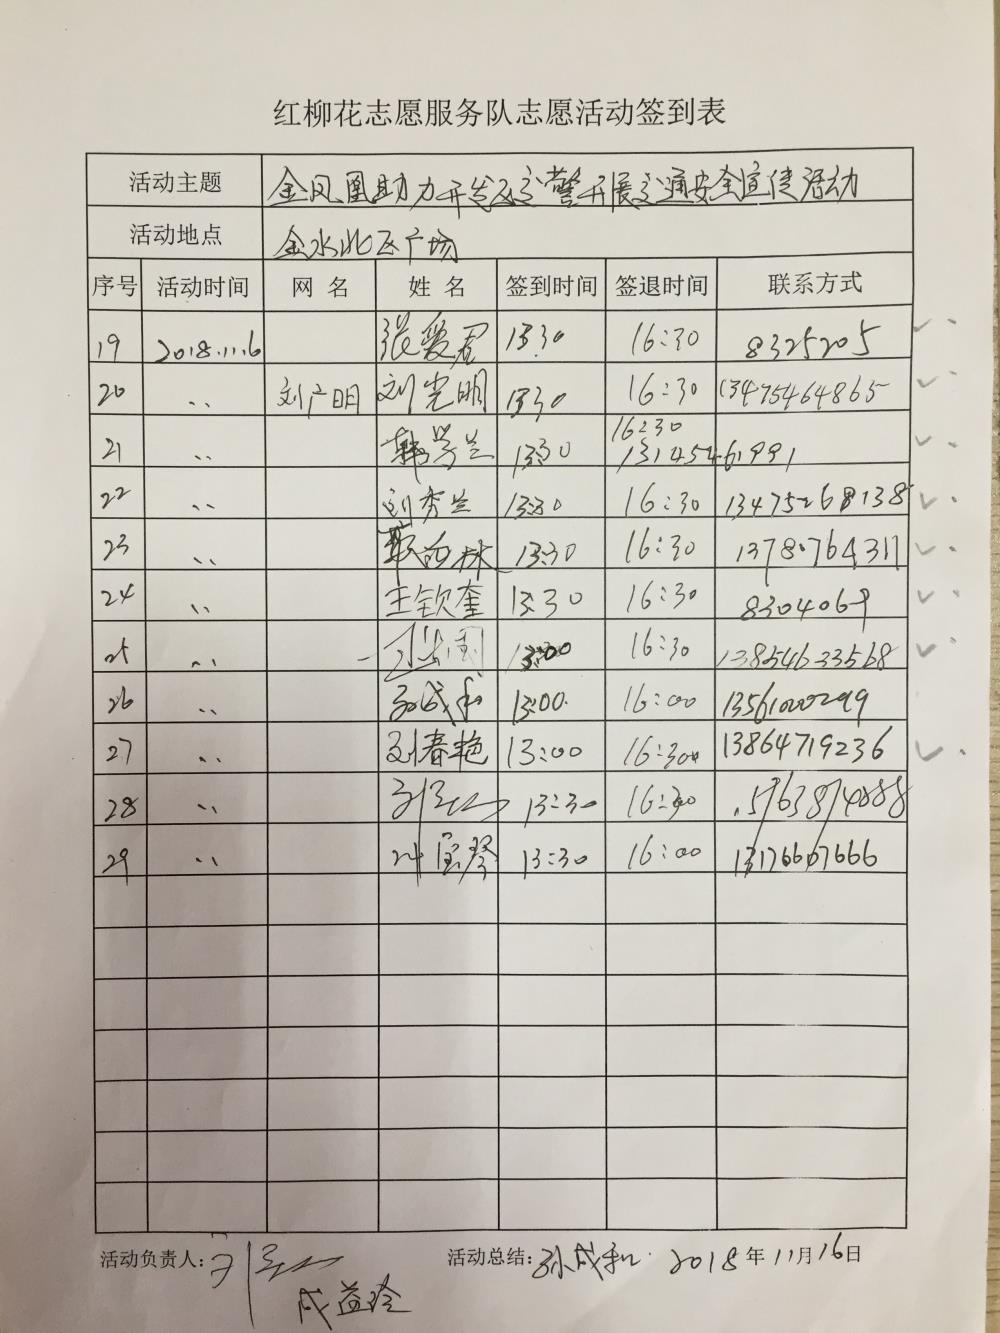 红柳花志愿服务队志愿活动签到表
活动主题 金凤凰助力开发区交警开展交通安全宣传活动
活动地点 金水北区广场
序号 活动时间 网 名 姓 名 签到时间 签退时间 联系方式
19 2018.11.6 张爱君 13:30 16:30 8325205
20 〃 刘广明 刘光明 13:30 16:30 13475464865
21 〃 13:30 16:30 13145461991
22 〃 刘秀兰 13:30 16:30 13475268138
23 〃 13:30 16:30
24 〃 王钦奎 13:30 16:30
25 〃 13:00 16:30 13854633568
26 〃 孙成和 13:00 16:00 13561000299
27 〃 刘春艳 13:00 16:30 13864719236
28 〃 13:30 16:30
29 〃 宝琴 13:30 16:00
活动负责人: 活动总结: 孙成和 2018年11月16日
成益玲